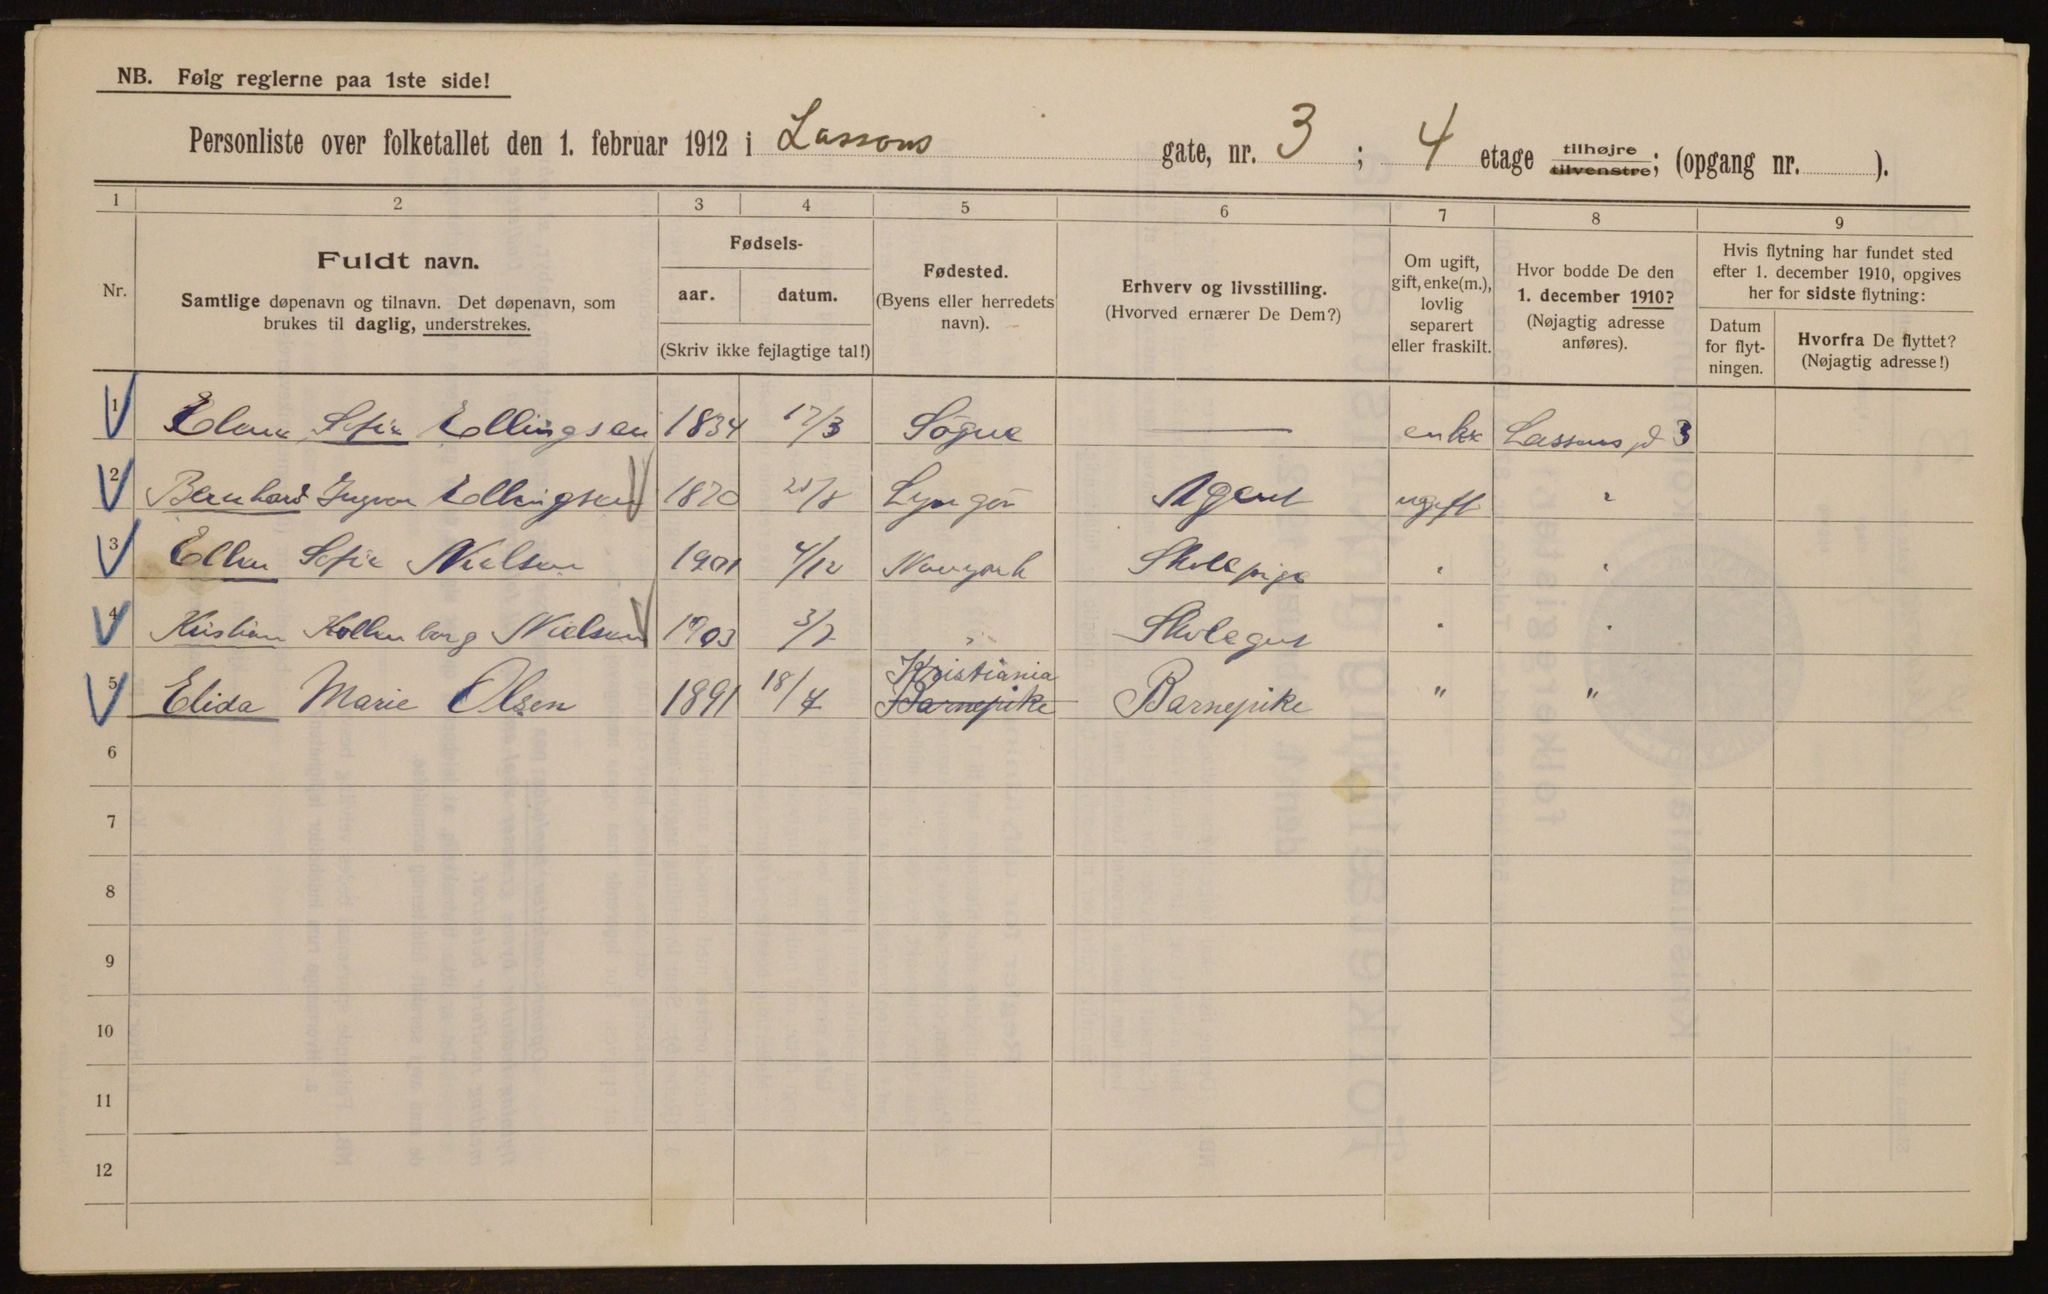 NB. Følg reglerne paa 1ste side!
Personliste over folketallet den 1. februar 1912 i Lassons gate, nr. 3 ; 4 etage tilhøjre tilvenstre; (opgang nr. ).
1 2 3 4 5 6 7 8 9
Nr.
Fuldt navn.
Samtlige døpenavn og tilnavn. Det døpenavn, som
brukes til daglig, understrekes.
Fødsels-
aar. datum.
(Skriv ikke fejlagtige tal!)
Fødested.
(Byens eller herredets
navn).
Erhverv og livsstilling.
(Hvorved ernærer De Dem?)
Om ugift,
gift, enke(m.),
lovlig
separert
eller fraskilt.
Hvor bodde De den
1. december 1910?
(Nøjagtig adresse
anføres).
Hvis flytning har fundet sted
efter 1. december 1910, opgives
her for sidste flytning:
Datum
for flyt-
ningen.
Hvorfra De flyttet?
(Nøjagtig adresse!)
1 Sofie Ellingsen 1834 17/3 Sögne — enke Lassons g 3
2 Bernhard Ingvar Ellingsen 1870 /8 Lyngör Agent ugift "
3 Ellen Sofie Nielsen 1901 4/12 Newyork Skolepige " "
4 Kristian Nielsen 1903 3/7 " Skolegut " "
5 Elida Marie Olsen 1891 18/4 Kristiania Barnepike Barnepike " "
6
7
8
9
10
11
12